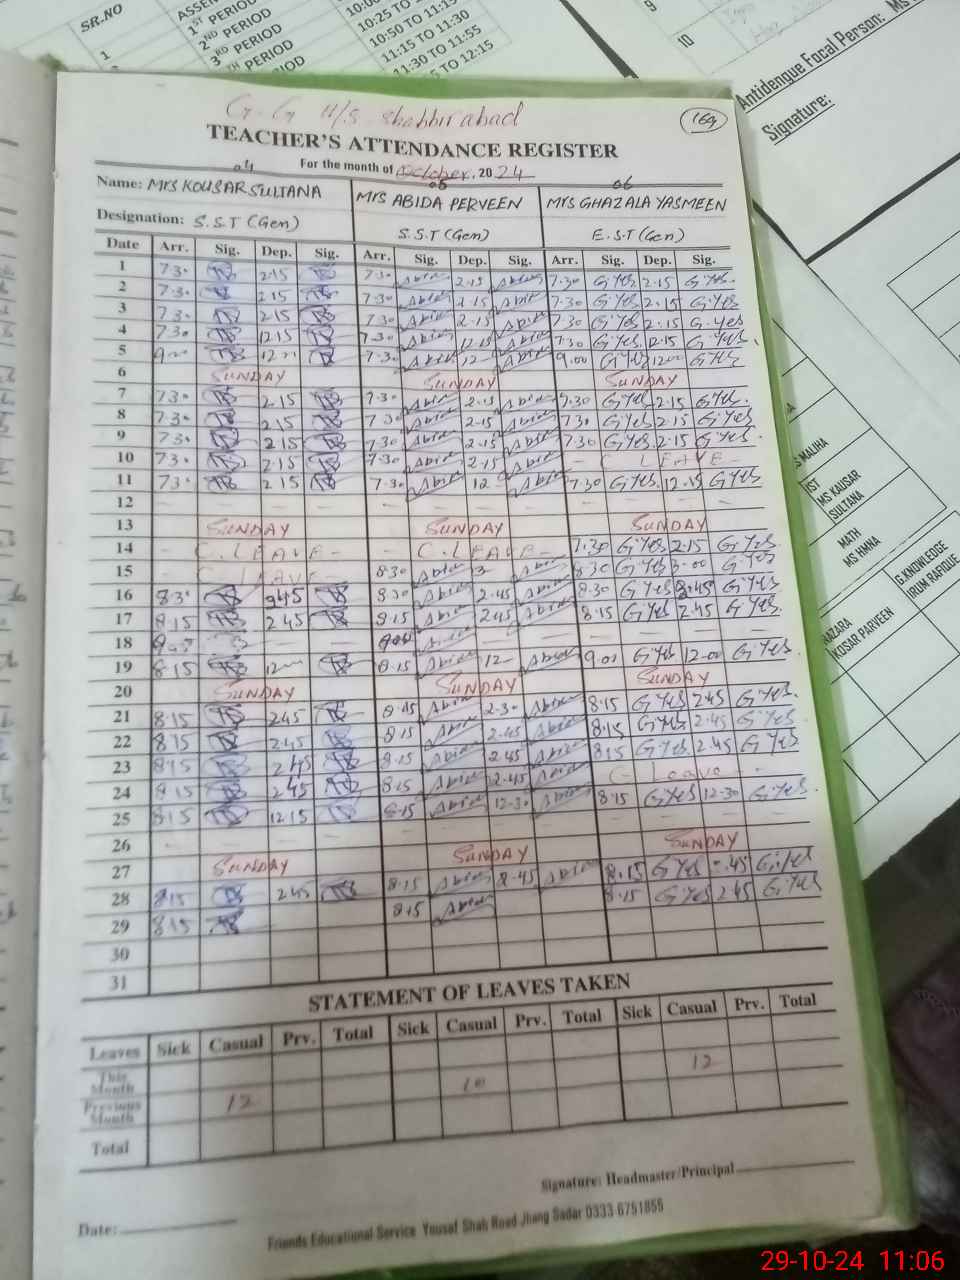 SR.NO
1
1ST PERIOD
2ND PERIOD
3RD PERIOD
PERIOD
10:25 TO
10:50 TO 11:15
11:15 TO 11:30
11:30 TO 11:55
TO 12:15
9
10
Antidengue Focal Person: Ms
Signature:
G.G H/S Shabbirabad
169
TEACHER'S ATTENDANCE REGISTER
For the month of October, 2024
04 05 06
Name: Mrs KOUSAR SULTANA Mrs ABIDA PERVEEN Mrs GHAZALA YASMEEN
Designation: S.S.T (Gen) S.S.T (Gen) E.S.T (Gen)
Date Arr. Sig. Dep. Sig. Arr. Sig. Dep. Sig. Arr. Sig. Dep. Sig.
1 7.30 2.15 7.30 Abida 2.15 Abida 7.30 G.Yes 2.15 G.Yes
2 7.30 2.15 7.30 Abida 2.15 Abida 7.30 G.Yes 2.15 G.Yes
3 7.30 2.15 7.30 Abida 2.15 Abida 7.30 G.Yes 2.15 G.Yes
4 7.30 12.15 7.30 Abida 12.15 Abida 7.30 G.Yes 12.15 G.Yes
5 9.00 12 7.30 Abida 12 Abida 9.00 G.Yes 12.00 G.Yes
6 SUNDAY SUNDAY SUNDAY
7 7.30 2.15 7.30 Abida 2.15 Abida 7.30 G.Yes 2.15 G.Yes
8 7.30 2.15 7.30 Abida 2.15 Abida 7.30 G.Yes 2.15 G.Yes
9 7.30 2.15 7.30 Abida 2.15 Abida 7.30 G.Yes 2.15 G.Yes
10 7.30 2.15 7.30 Abida 2.15 Abida - C LEAVE -
11 7.30 2.15 7.30 Abida 12 Abida 7.30 G.Yes 12.15 G.Yes
12 - - - - - - - - - - - -
13 SUNDAY SUNDAY SUNDAY
14 - C. LEAVE - C. LEAVE - 7.30 G.Yes 2.15 G.Yes
15 - C LEAVE - 8.30 Abida 3 Abida 8.30 G.Yes 3.00 G.Yes
16 8.30 2.45 8.30 Abida 2.45 Abida 8.30 G.Yes 2.45 G.Yes
17 8.15 2.45 8.15 Abida 2.45 Abida 8.15 G.Yes 2.45 G.Yes
18 - - - - - -
19 8.15 12 8.15 Abida 12 Abida 9.00 G.Yes 12.00 G.Yes
20 SUNDAY SUNDAY SUNDAY
21 8.15 2.45 8.15 Abida 2.30 Abida 8.15 G.Yes 2.45 G.Yes
22 8.15 2.45 8.15 Abida 2.45 Abida 8.15 G.Yes 2.45 G.Yes
23 8.15 2.45 8.15 Abida 2.45 Abida 8.15 G.Yes 2.45 G.Yes
24 8.15 2.45 8.15 Abida 2.45 Abida C- Leave -
25 8.15 12.15 8.15 Abida 12.30 Abida 8.15 G.Yes 12.30 G.Yes
26 - - - - - - - - - - - -
27 SUNDAY SUNDAY SUNDAY
28 8.15 2.45 8.15 Abida 2.45 Abida 8.15 G.Yes 2.45 G.Yes
29 8.15 8.15 Abida 8.15 G.Yes 2.45 G.Yes
30
31
STATEMENT OF LEAVES TAKEN
Leaves Sick Casual Prv. Total Sick Casual Prv. Total Sick Casual Prv. Total
This Month
Previous Month 12 10 12
Total
Signature: Headmaster/Principal
Date:
Friends Educational Service Yousaf Shah Road Jhang Sadar 0333-6751855
S MALIHA
IST
MS KAUSAR
SULTANA
MATH
MS HMNA
G.KNOWLEDGE
IRUM RAFIQUE
NAZARA
KOSAR PARVEEN
29-10-24 11:06